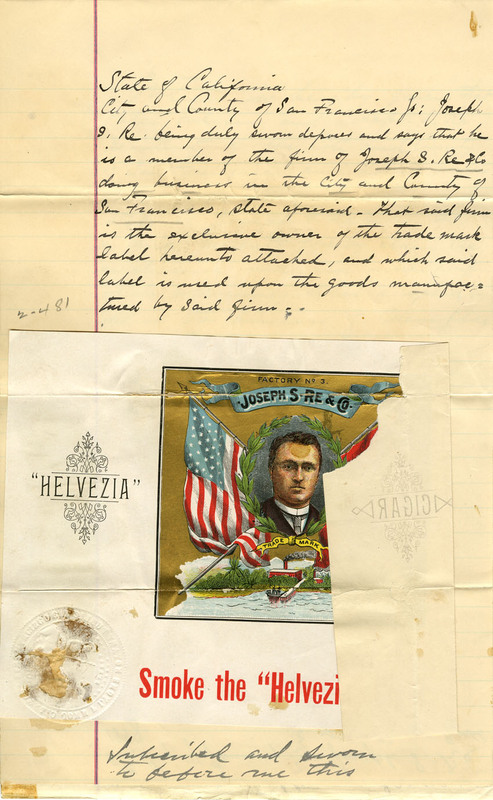 State of California
City and County of San Francisco ss: Joseph
S. Re. being duly sworn deposes and says that he
is a member of the firm of Joseph S. Re & Co
doing business in the City and County of
San Francisco, state aforesaid - That said firm
is the exclusive owner of the trade mark
label hereunto attached, and which said
label is used upon the goods manufac=
tured by said firm.
2-481
FACTORY No 3.
JOSEPH S. RE & CO.
"HELVEZIA"
CIGAR
TRADE MARK
Smoke the "Helvezi
Subscribed and sworn
to before me this